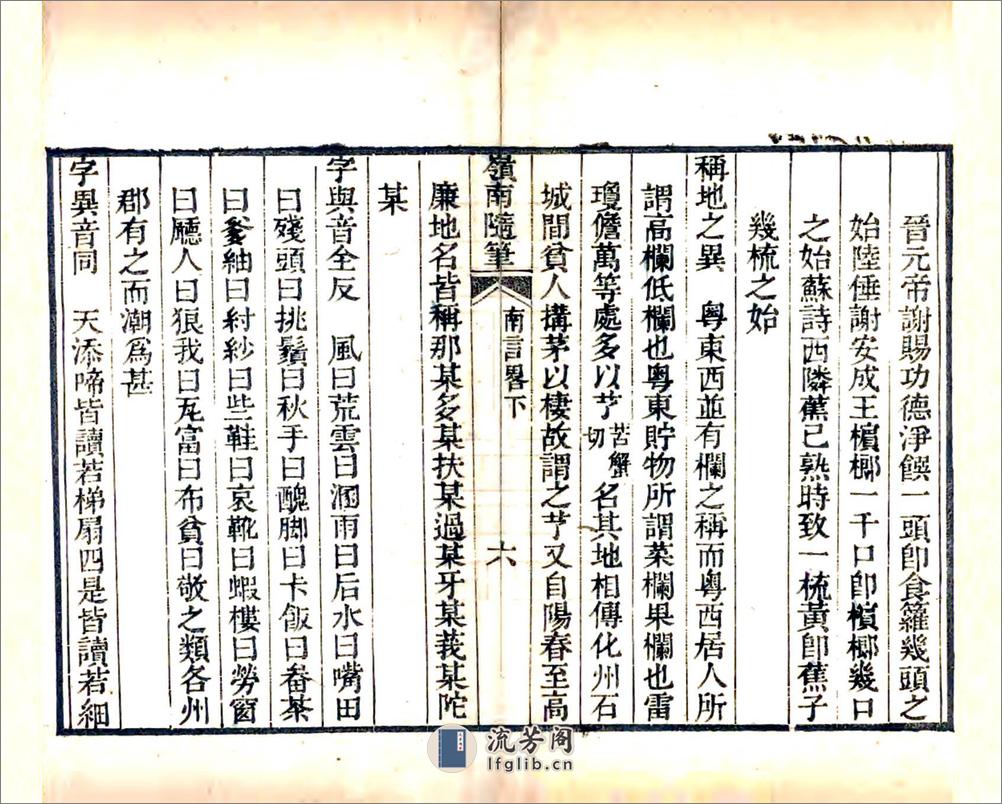 晉元帝謝賜功德淨饌一頭卽食籮幾頭之
始陸倕謝安成王檳榔一千口卽檳榔幾口
之始蘇詩西隣蕉已熟時致一梳黃卽蕉子
幾梳之始
稱地之異　粤東西並有欄之稱而粤西居人所
謂高欄低欄也粤東貯物所謂菜欄果欄也雷
瓊儋萬等處多以艼苦蟹切名其地相傳化州石
城間貧人搆茅以棲故謂之艼又自陽春至高
廉地名皆稱那某多某扶某過某牙某莪某陀
某
字與音全反　風曰荒雲曰溷雨曰后水曰嘴田
曰殘頭曰挑鬚曰秋手曰醜脚曰卡飯曰畚茶
曰爹紬曰紂紗曰些鞋曰哀靴曰蝦樓曰勞窗
曰廳人曰狼我曰瓦富曰布貧曰敬之類各州
郡有之而潮爲甚
字異音同　天添啼皆讀若梯扇四是皆讀若細
嶺南隨筆
南言畧下
六
流芳阁
lfglib.cn